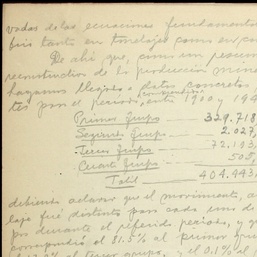 vadas de las ecuaciones fundamento
fué tanto en tonelajes como en
De ahí que, como un
reconstrucción de la producción mine
hayamos llegado a datos concretos,
tes por el período, entre 1900 y 194
Primer Grupo — 329.718
Segundo Grupo — 2.027,
Tercer Grupo — 72.193
Cuarto Grupo — 505,
Total — 404.443
debiendo aclarar que el movimiento, a
laje fué distinto para cada uno d
pos durante el referido período, y q
correspondió el 81.5% al primer gru
al tercer grupo, y el 0.1% al